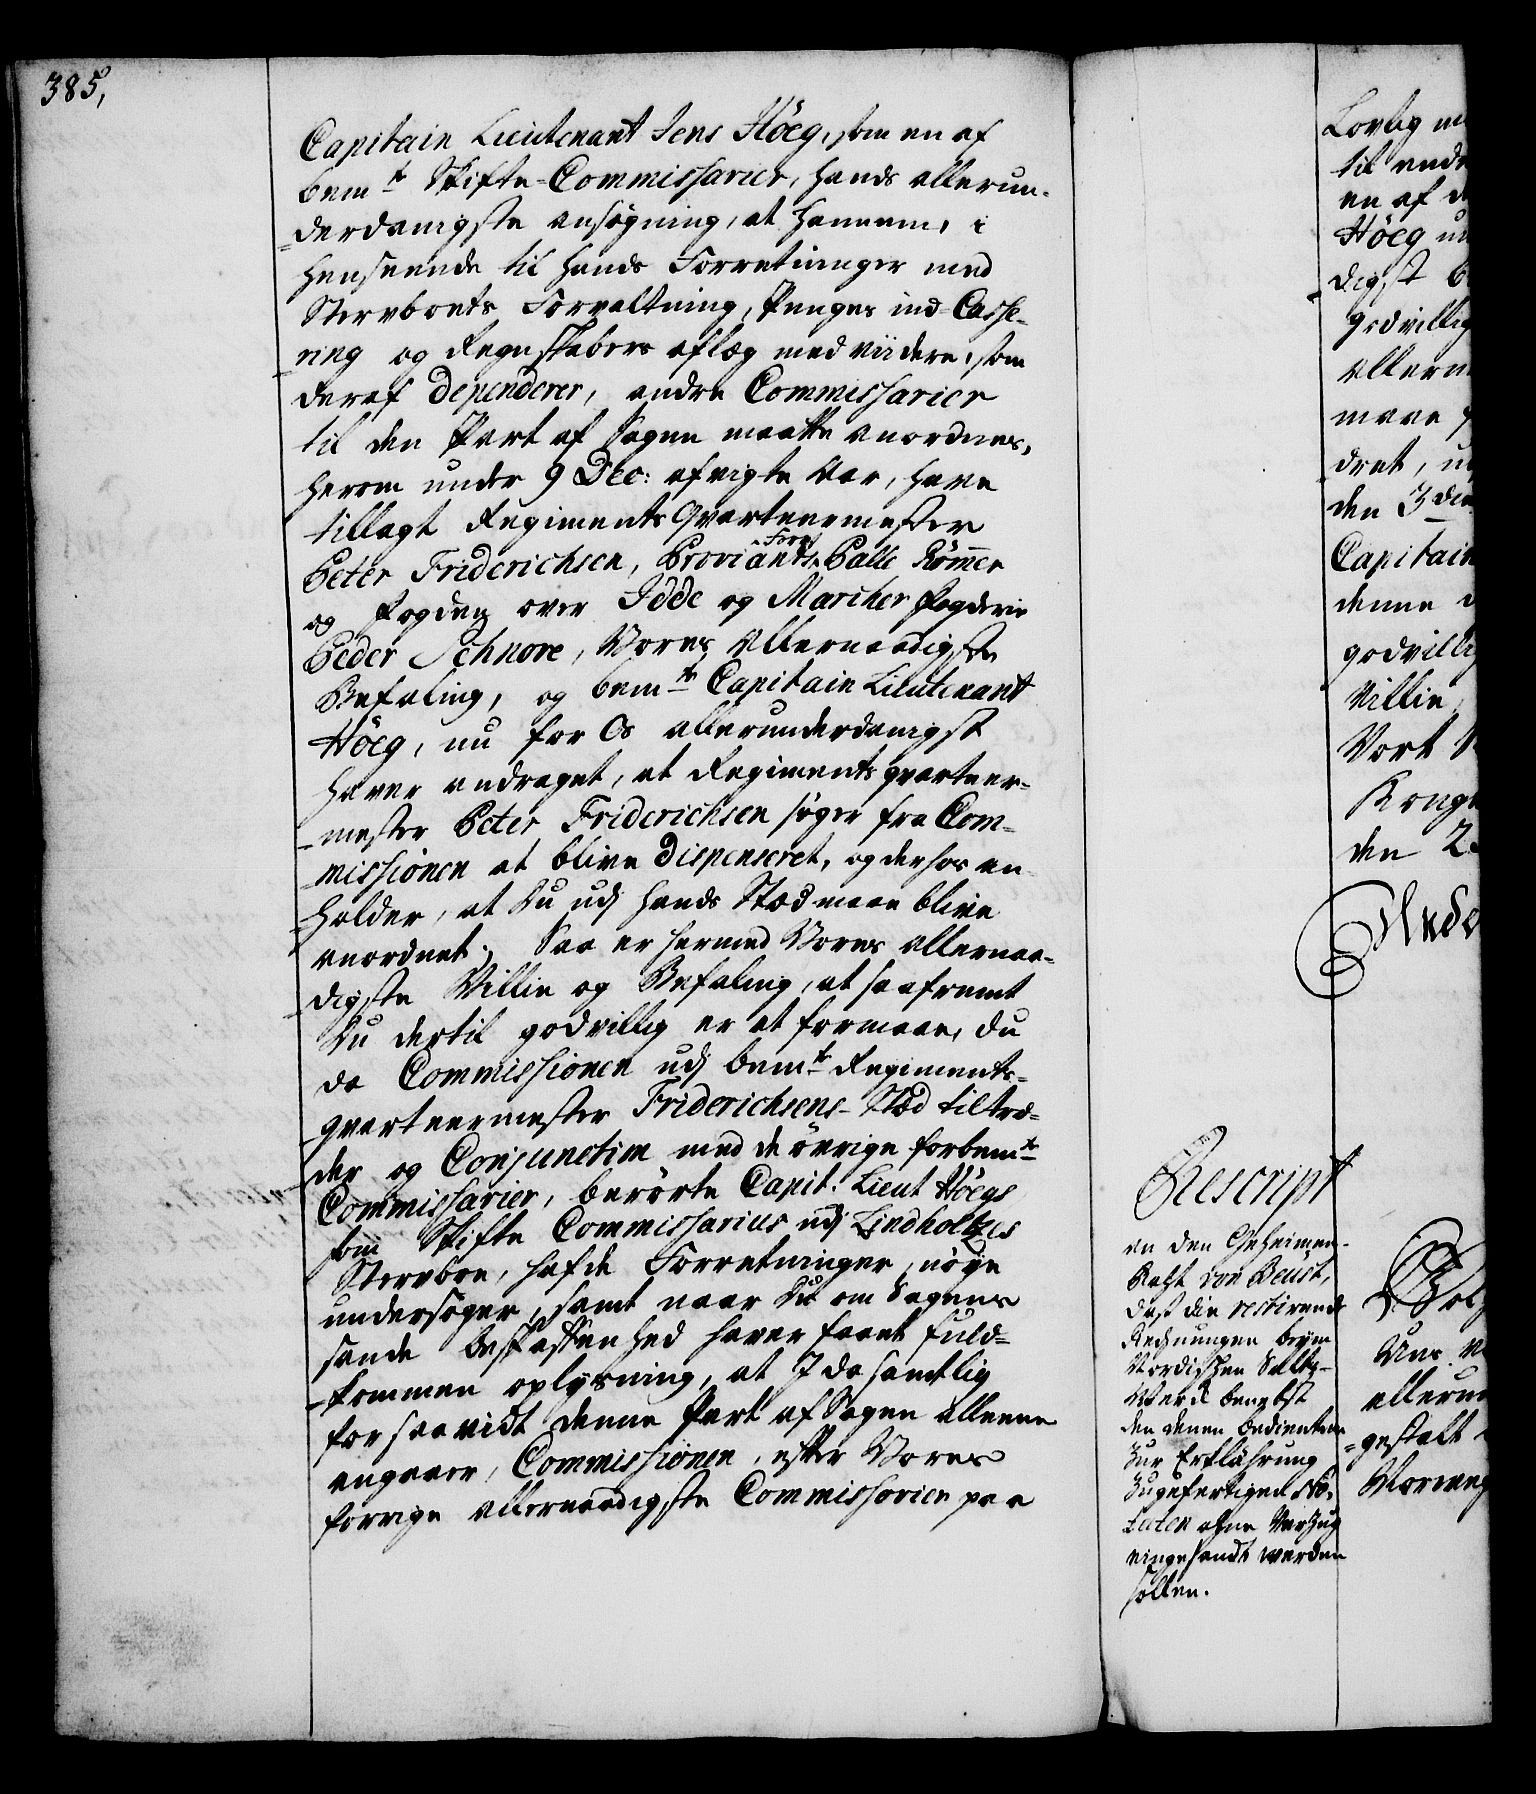 385,
Capitain Lieutenant Jens Höeg, som en af
bemte Skifte-Commissarier, hands allerun-
=derdanigste ansøgning, at hannem, i
henseende til hands Forretninger med
Stervboets Forvaltning, Penges ind-Casse-
=ring og Regnskabers aflæg med viidere, som
deraf dependerer, andre Commissarier
til den Part af Sagen maatte anordnes,
herom under 9 Dec: afvigte Aar, have
tillagt Regiments Qvarteermester
Peter Friderichsen, Proviants Forv: Palle Rømer
og Fogden over Idde og Marcher Fogderie
Peder Schnore, Vores Allernaadigste
Befaling, og bemte Capitain Lieutenant
Höeg, nu for Os allerunderdanigst
haver andraget, at Regiments qvarteer-
=mester Peter Friderichsen søger fra Com-
=missionen at blive dispenseret, og derhos an-
=holder, at Du udj hands Stæd maa blive
anordnet; Saa er hermed Vores allernaa-
=digste Villie og Befaling, at saafremt
Du dertil godvillig er at formaae, du
da Commissionen udj bemte Regiments-
=qvarteermester Friderichsens Stæd tiltræ-
der og Conjunctim med de övrige forbemte
Commissarier, berörte Capit: Lieut Höegs
som Skifte Commissarius udj Lindholtzes
Stervboe, hafde Forretninger, nöye
undersøger, samt naar Du om Sagens
sande beskaffenhed haver faaet fuld-
=kommen oplysning, at I da samtlig
for saa vidt denne Part af Sagen alleene
angaaer, Commissionen, efter Vores
forrige allernaadigste Commissorier paa
Rescript
an den Geheimen-
Raht von Beust,
dass die restirende
Rechnungen beym
Nordischen Saltz-
Werck benebst
den denen bedienten
Zur Erklährung
Zugefertigen No-
taten ohne Verzug
eingesandt werden
sollen.
Lovlig
til
en af
Höeg
digst
godvillig
allern
maae
dret,
den 3die
Capitain
denne
godvillig
Villie
Vort
Kong
den 2
Uns
allerun
=gestalt
Norweg